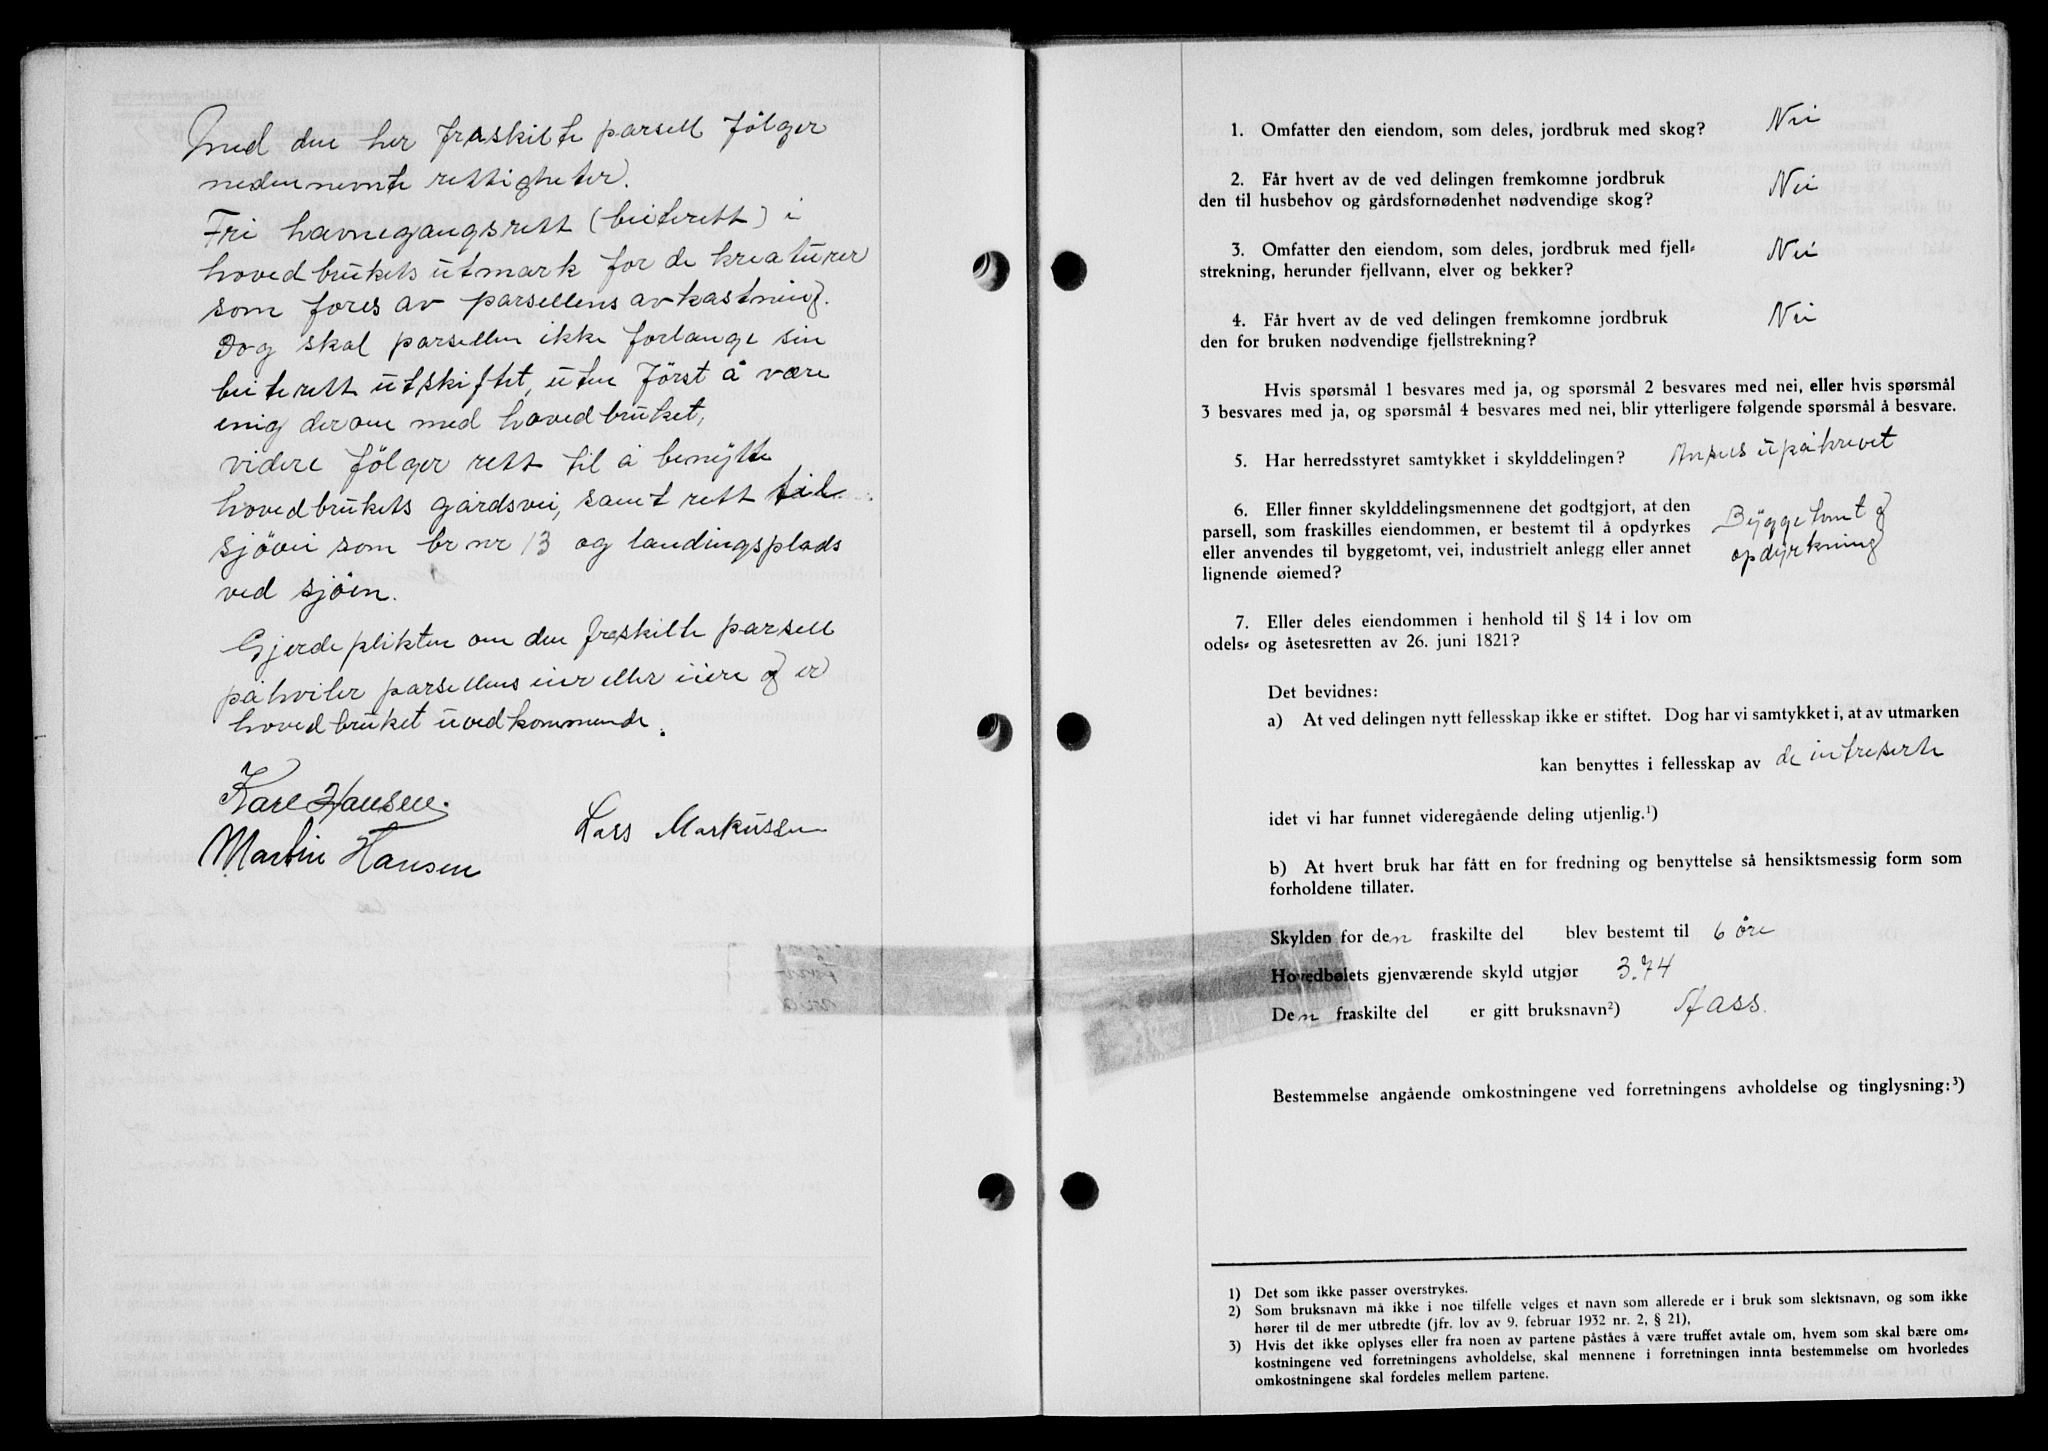 Med den her fraskilte parsell følger
nedennevnte rettigheter.
Fri havnegangsrett (beiterett) i
hovedbrukets utmark for de kreaturer
som fores av parsellens avkastning.
Dog skal parsellen ikke forlange sin
beiterett utskiftet, uten først å være
enig derom med hovedbruket,
videre følger rett til å benytte
hovedbrukets gårdsvei, samt rett til
sjøvei som br nr 13 og landingsplads
ved sjøen.
Gjerdeplikten om den fraskilte parsell
påhviler parsellens eier eller eiere og er
hovedbruket uvedkommende.
Karl Hansen.
Lars Markussen
Martin Hansen
1. Omfatter den eiendom, som deles, jordbruk med skog? Nei
2. Får hvert av de ved delingen fremkomne jordbruk
den til husbehov og gårdsfornødenhet nødvendige skog? Nei
3. Omfatter den eiendom, som deles, jordbruk med fjell-
strekning, herunder fjellvann, elver og bekker? Nei
4. Får hvert av de ved delingen fremkomne jordbruk
den for bruken nødvendige fjellstrekning? Nei
Hvis spørsmål 1 besvares med ja, og spørsmål 2 besvares med nei, eller hvis spørsmål
3 besvares med ja, og spørsmål 4 besvares med nei, blir ytterligere følgende spørsmål å besvare.
5. Har herredsstyret samtykket i skylddelingen? Ansees upåkrevet
6. Eller finner skylddelingsmennene det godtgjort, at den
parsell, som fraskilles eiendommen, er bestemt til å opdyrkes
eller anvendes til byggetomt, vei, industrielt anlegg eller annet
lignende øiemed?
Byggetomt og
opdyrkning
7. Eller deles eiendommen i henhold til § 14 i lov om
odels- og åsetesretten av 26. juni 1821?
Det bevidnes:
a) At ved delingen nytt fellesskap ikke er stiftet. Dog har vi samtykket i, at av utmarken
kan benyttes i fellesskap av de intreserte
idet vi har funnet videregående deling utjenlig.¹)
b) At hvert bruk har fått en for fredning og benyttelse så hensiktsmessig form som
forholdene tillater.
Skylden for den fraskilte del blev bestemt til 6 øre
Hovedbølets gjenværende skyld utgjør 3.74
Den fraskilte del er gitt bruksnavn²)
Bestemmelse angående omkostningene ved forretningens avholdelse og tinglysning:³)
1) Det som ikke passer overstrykes.
2) Som bruksnavn må ikke i noe tilfelle velges et navn som allerede er i bruk som slektsnavn, og som ikke
hører til de mer utbredte (jfr. lov av 9. februar 1932 nr. 2, § 21),
3) Hvis det ikke oplyses eller fra noen av partene påståes å være truffet avtale om, hvem som skal bære om-
kostningene ved forretningens avholdelse, skal mennene i forretningen innta bestemmelse om hvorledes
omkostningene skal fordeles mellem partene.